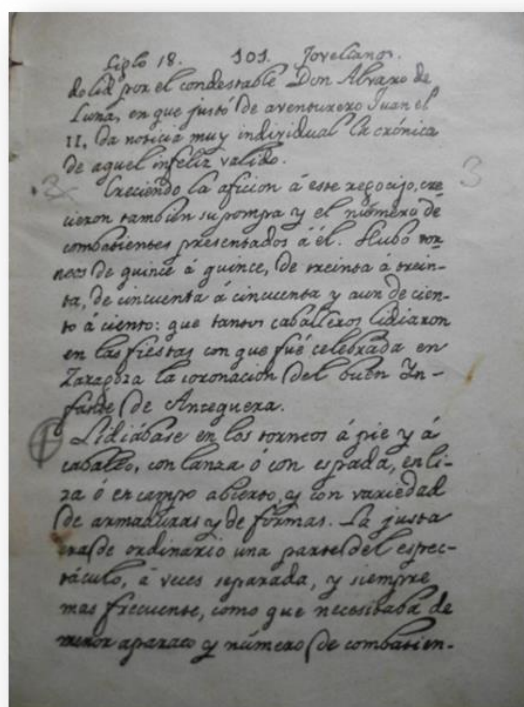 Siglo 18. 101. Jovellanos.
dolid por el condestable Don Alvaro de
Luna, en que justó de aventurero Juan el
II, da noticia muy individual la crónica
de aquel infeliz valido.
Creciendo la aficion á este regocijo, cre
cieron tambien su pompa y el número de
combatientes presentados á él. Hubo tor
neos de quince á quince, de treinta á trein-
ta, de cincuenta á cincuenta y aun de cien-
to á ciento: que tantos caballeros lidiaron
en las fiestas con que fué celebrada en
Zaragoza la coronacion del buen In-
fante de Antequera.
Lidiábase en los torneos á pie y á
caballo, con lanza ó con espada, en li-
za ó en campo abierto, y con variedad
de armaduras y de formas. La justa
era de ordinario una parte del espec-
táculo, á veces separada, y siempre
mas frecuente, como que necesitaba de
menor aparato y número de combatien-